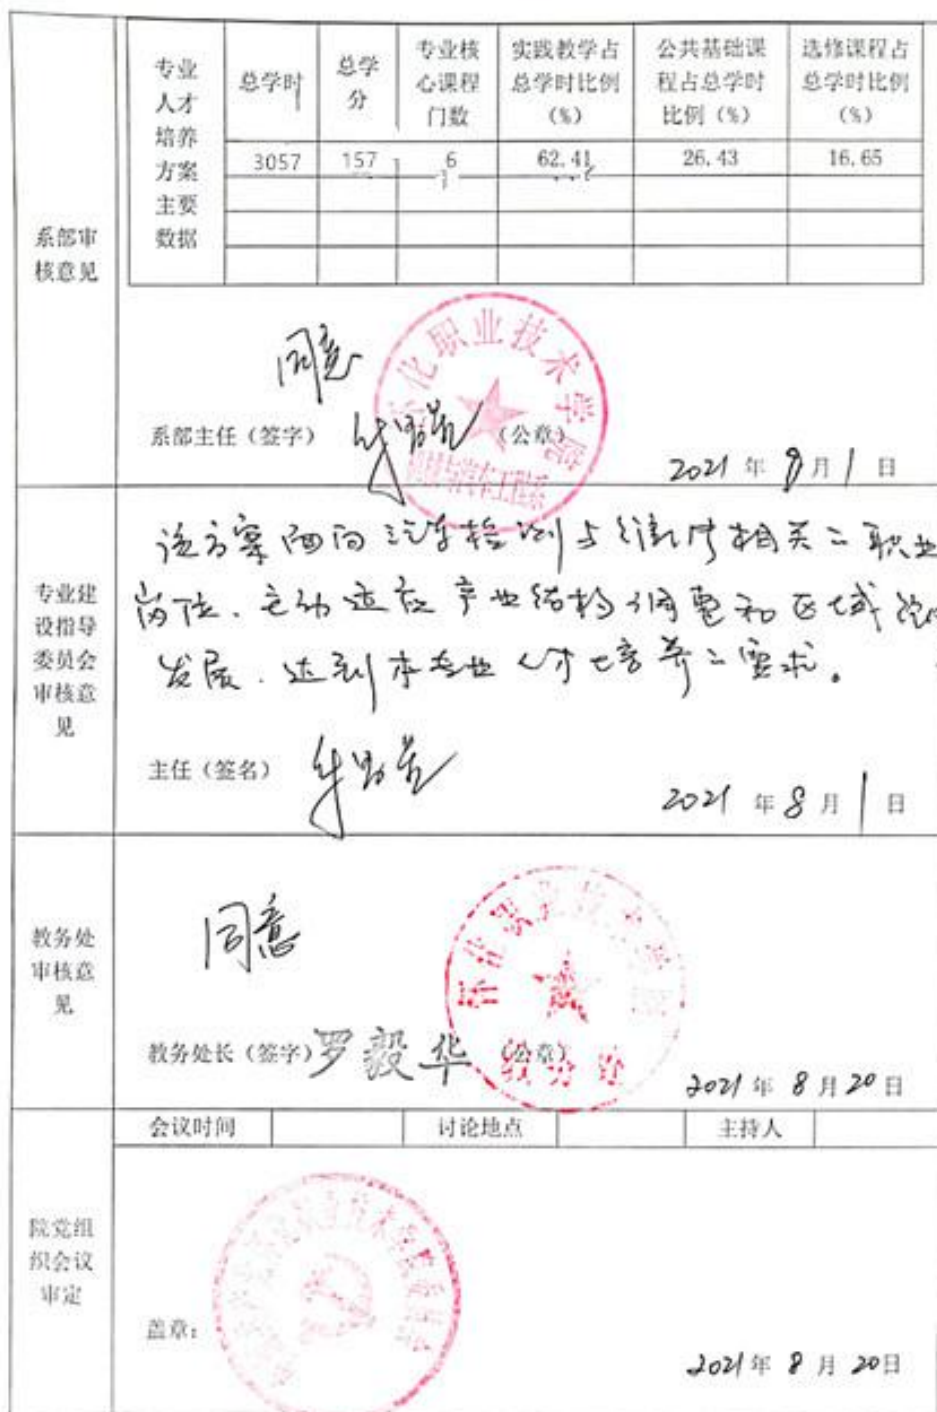 系部审
核意见
专业
人才
培养
方案
主要
数据
总学时
总学
分
专业核
心课程
门数
实践教学占
总学时比例
(%)
公共基础课
程占总学时
比例(%)
选修课程占
总学时比例
(%)
3057 157 6 62.41 26.43 16.65
同意
化职业技术学院
系部主任(签字) (公章)
2021年8月1日
专业建
设指导
委员会
审核意
见
该方案面向汽车检测与维修相关之职业
岗位、主动适应产业结构调整和区域
发展、达到本专业人才培养之需求。
主任(签名)
2021年8月1日
教务处
审核意
见
同意
教务处长(签字) 罗毅华 (公章)
怀化职业技术学院
教务处
2021年8月20日
院党组
织会议
审定
会议时间 讨论地点 主持人
盖章:
2021年8月20日